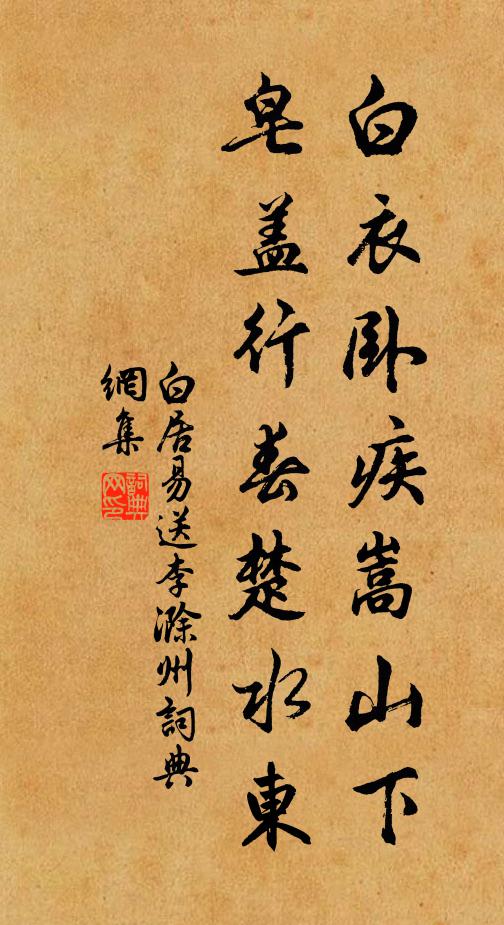 白衣卧疾嵩山下
皂盖行春楚水東
白居易送李滁州詞典
網集
詞典
网印